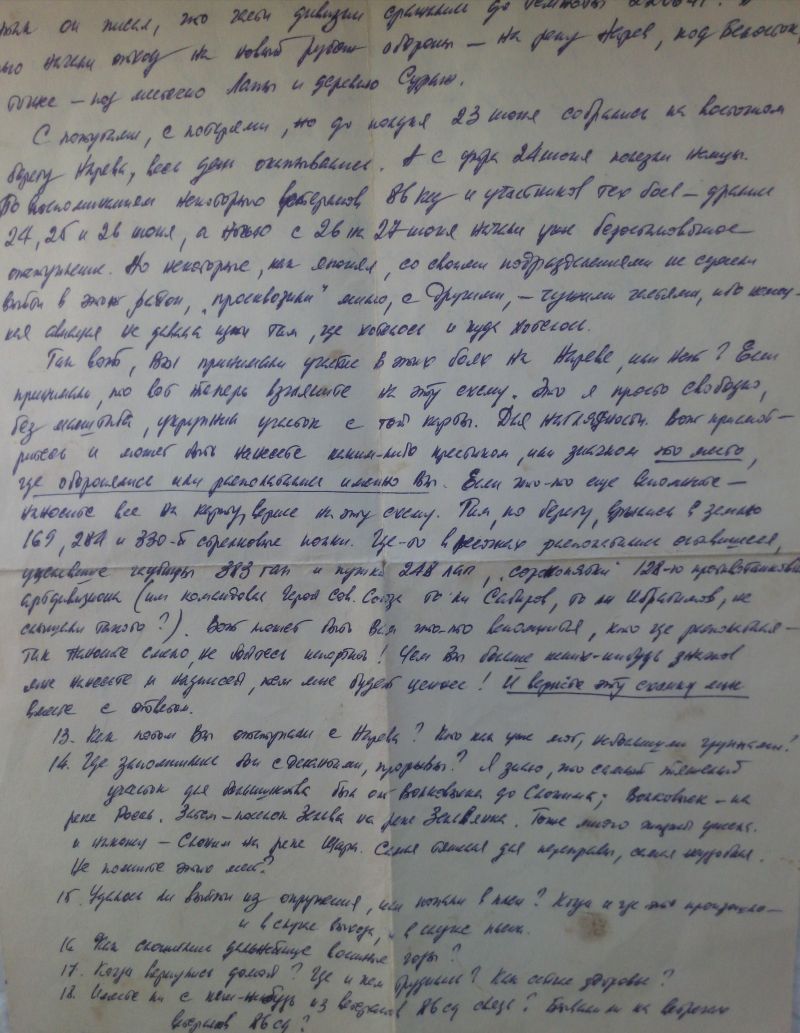 он писал, что части дивизии сражались до
начали отход на новый рубеж обороны — на реку Нарев, под Белосток,
точнее — под местечко Лапы и деревню Сураж.
С попутами, с потерями, но до полудня 23 июня собрались на восточном
берегу Нарева, весь день окапывались. А с утра 24 июня полезли немцы.
По воспоминаниям некоторых ветеранов 86 ксд и участников тех боев — дрались
24, 25 и 26 июня, а ночью с 26 на 27 июня начали уже безостановочное
отступление. Но некоторые, как я понял, со своими подразделениями не сумели
выйти в этот район, „проскочили" мимо, с другими, — чужими частями, ибо немец-
кая авиация не давала идти там, где хотелось и куда хотелось.
Так вот, Вы принимали участие в этих боях на Нареве, или нет? Если
принимали, то вот теперь взгляните на эту схему. Это я просто свободно,
без масштаба, укрупнил участок с той карты. Для наглядности. Вот присмот-
ритесь и может быть нанесете каким-либо крестиком, или значком это место,
где оборонялись или располагались именно Вы. Если что-то еще вспомните —
наносите все на карту, вернее на эту схему. Там, по берегу, врылись в землю
169, 284 и 330-й стрелковые полки. Где-то в располагались оставшиеся,
уцелевшие гаубицы 383 гап и пушки 248 лап, „сорокапятки" 128-го противотанкового
артдивизиона (им командовал Герой Сов. Союза то ли Сабиров, то ли Ибрагимов, не
слыхали такого?). Вот может быть Вам что-то вспомнится, кто где располагался —
так наносите смело, не бойтесь испортить! Чем Вы больше каких-нибудь знаков
мне нанесете и надписей, тем мне будет ценнее! И верните эту схемку мне
вместе с ответом.
13. Как потом Вы отступали с Нарева? Кто как уже мог, небольшими группами!
14. Где запомнились бои с десантами, прорывы? Я знаю, что самый тяжелый
участок для большинства был от Волковыска до Слонима; Волковыск — на
реке Россь. Затем — поселок Зельва на реке Зельвянка. Тоже много жизней унесла.
и наконец — Слоним на реке Щара. Самая тяжелая для переправы, самая неудобная.
Не помните этих мест?
15. Удалось ли выйти из окружения, или попали в плен? Когда и где это произошло —
и в случае выхода, и в случае плена.
16. Как сложились дальнейшие военные годы?
17. Когда вернулись домой? Где и кем трудились? Как сейчас здоровье?
18. Имеете ли с кем-нибудь из ветеранов 86 сд связь? Бывали ли на встречах
ветеранов 86 сд?